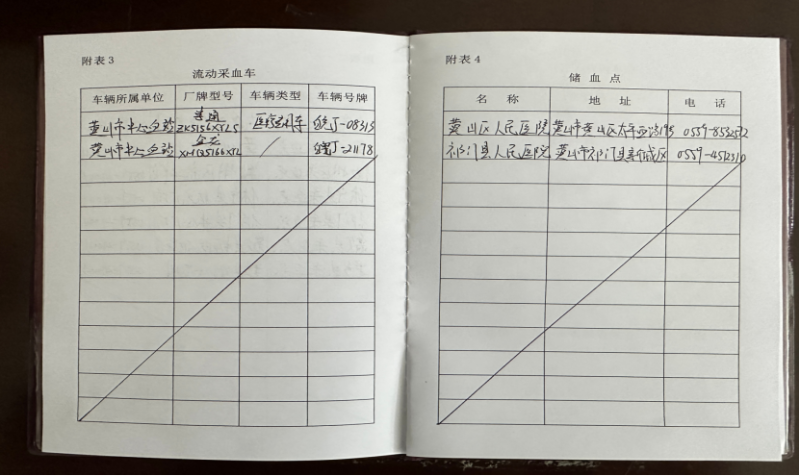 附表3
流动采血车
车辆所属单位 厂牌型号 车辆类型 车辆号牌
黄山市中心血站 ZK5156XTL5 医疗专用车 皖J-08313
黄山市中心血站 金龙 皖J-21178
附表4
储血点
名称 地址 电话
黄山区人民医院 黄山市黄山区太平西路 0559-8532572
祁门县人民医院 黄山市祁门县新城区 0559-4512310